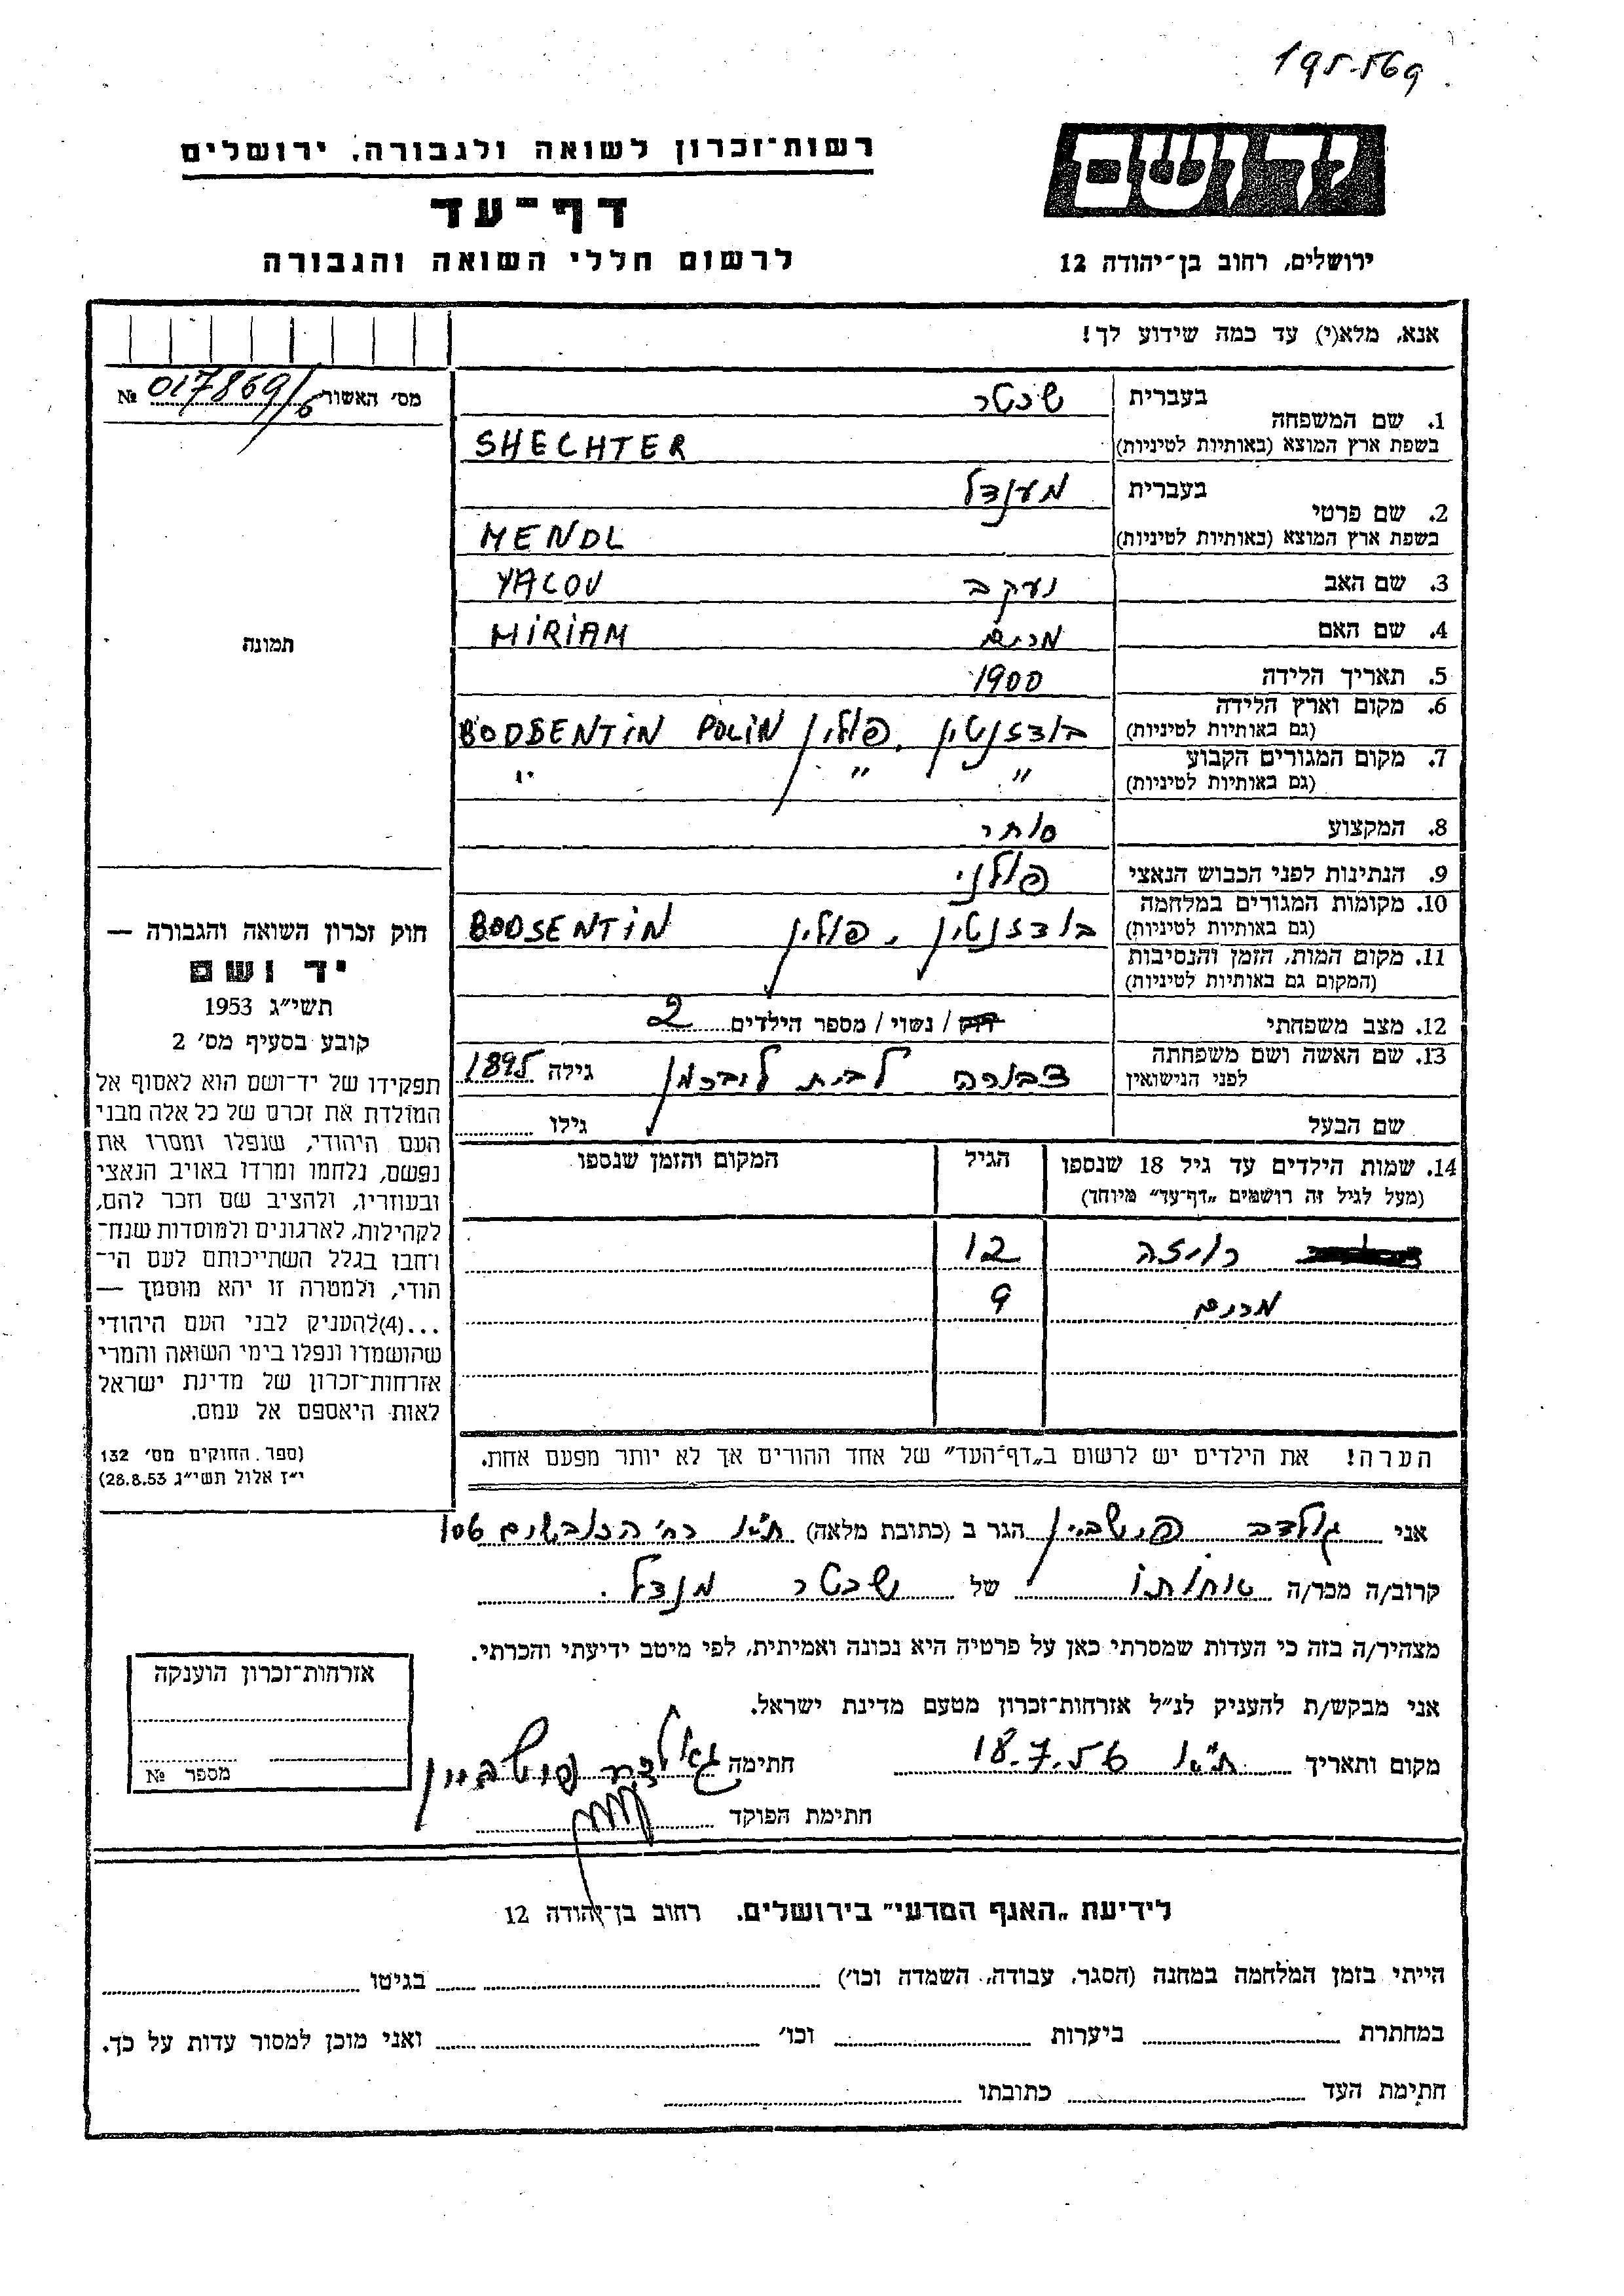 195569
יד ושם
רשות־זכרון לשואה ולגבורה, ירושלים
דף־עד
לרשום חללי השואה והגבורה
ירושלים, רחוב בן־יהודה 12
אנא, מלא(י) עד כמה שידוע לך!
מס׳ האשור 017869/6 №
1. שם המשפחה
בעברית שכטר
בשפת ארץ המוצא (באותיות לטיניות) SHECHTER
2. שם פרטי
בעברית מענדל
בשפת ארץ המוצא (באותיות לטיניות) MENDL
3. שם האב יעקב YACOV
4. שם האם מרים MIRIAM
5. תאריך הלידה 1900
6. מקום וארץ הלידה
(גם באותיות לטיניות) בודזנטין, פולין BODSENTIN POLIN
7. מקום המגורים הקבוע
(גם באותיות לטיניות) " " "
8. המקצוע סוחר
9. הנתינות לפני הכבוש הנאצי פולני
10. מקומות המגורים במלחמה
(גם באותיות לטיניות) בודזנטין, פולין BODSENTIN
11. מקום המות, הזמן והנסיבות
(המקום גם באותיות לטיניות)
12. מצב משפחתי רוק / נשוי / מספר הילדים 2
13. שם האשה ושם משפחתה
לפני הנישואין דבורה לבית ליברמן גילה 1895
שם הבעל גילו
14. שמות הילדים עד גיל 18 שנספו הגיל המקום והזמן שנספו
(מעל לגיל זה רושמים „דף־עד" מיוחד)
רויזה 12
מרים 9
הערה! את הילדים יש לרשום ב„דף־העד" של אחד ההורים אך לא יותר מפעם אחת.
תמונה
חוק זכרון השואה והגבורה —
יד ושם
תשי״ג 1953
קובע בסעיף מס׳ 2
תפקידו של יד־ושם הוא לאסוף אל
המולדת את זכרם של כל אלה מבני
העם היהודי, שנפלו ומסרו את
נפשם, נלחמו ומרדו באויב הנאצי
ובעוזריו, ולהציב שם וזכר להם,
לקהילות, לארגונים ולמוסדות שנח־
רחבו בגלל השתייכותם לעם הי־
הודי, ולמטרה זו יהא מוסמך —
...(4)להעניק לבני העם היהודי
שהושמדו ונפלו בימי השואה והמרי
אזרחות־זכרון של מדינת ישראל
לאות היאספם אל עמם.
(ספר החוקים מס׳ 132
י״ז אלול תשי״ג 28.8.53)
אני גולדה פישביין הגר ב (כתובת מלאה) ת״א רח׳ הכובשים 106
קרוב/ה מכר/ה אחותו של שכטר מנדל.
מצהיר/ה בזה כי העדות שמסרתי כאן על פרטיה היא נכונה ואמיתית, לפי מיטב ידיעתי והכרתי.
אני מבקש/ת להעניק לנ״ל אזרחות־זכרון מטעם מדינת ישראל.
מקום ותאריך ת״א 18.7.56 חתימה גאלדה פישביין
חתימת הפוקד
אזרחות־זכרון הוענקה
מספר №
לידיעת „האגף המדעי" בירושלים. רחוב בן־יהודה 12
הייתי בזמן המלחמה במחנה (הסגר, עבודה, השמדה וכו׳) בגיטו
במחתרת ביערות וכו׳ ואני מוכן למסור עדות על כך.
חתימת העד כתובתו